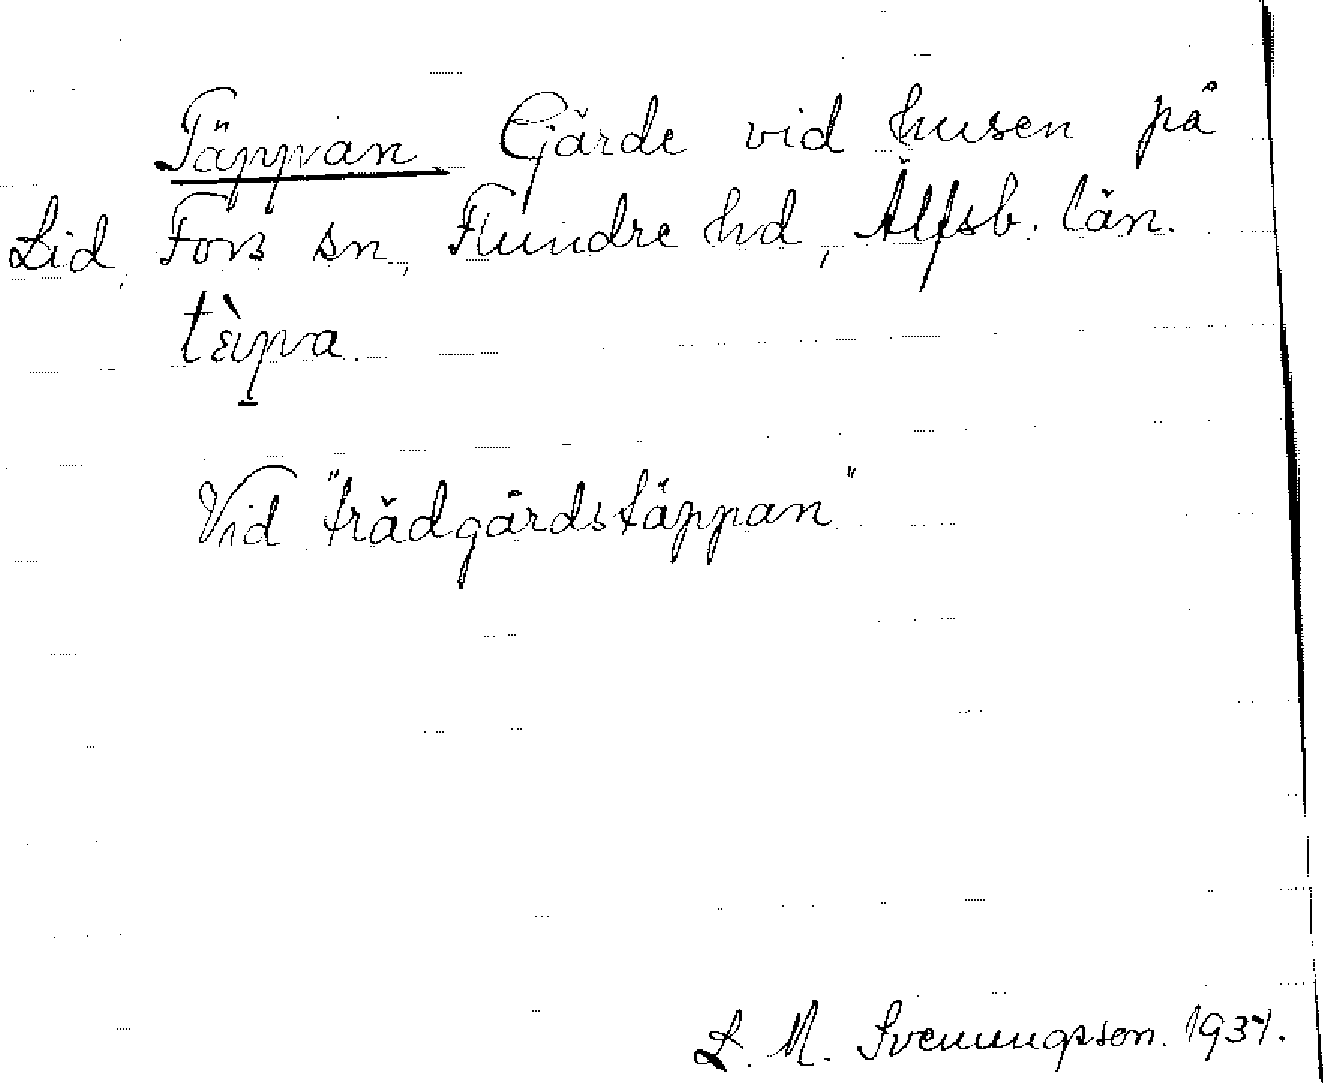 Täppan Gärde vid husen på
Lid, Fors sn, Flundre hd, Älfsb. län.
tὲp̠a.
Vid "trädgårdstäppan"
L. M. Svenungsson. 1937.